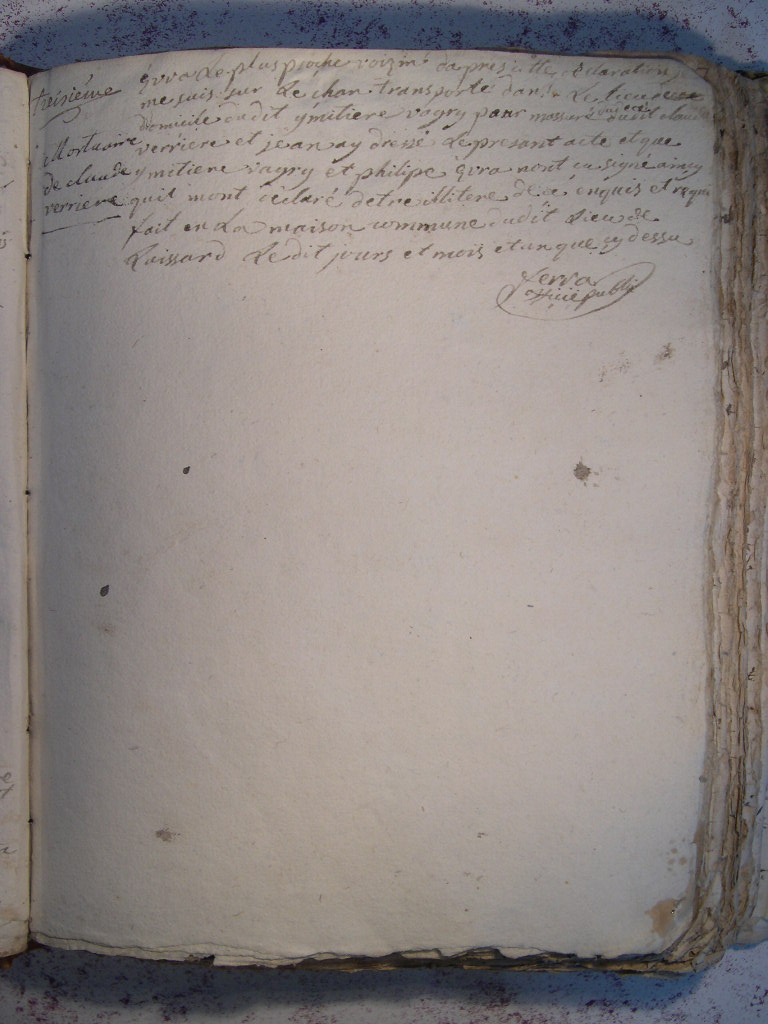 treisiéme
Mortuaire
de claude
verriere
le plus proche voizin daprés cette déclaration
me suis sur Le chan transporté dans Le lieu de
domicile dudit ymitiere vagry pour massuré du décé dudit claude
verriere et jean ay dressé Le présant acte et que
ymitiere vagry et philipe nont su signé
quil mont déclaré detre illitere de ce enquis et requi
fait en La maison commune dudit Lieu de
Luissard Le dit jours et mois et an que cy dessu
ferra
officié public